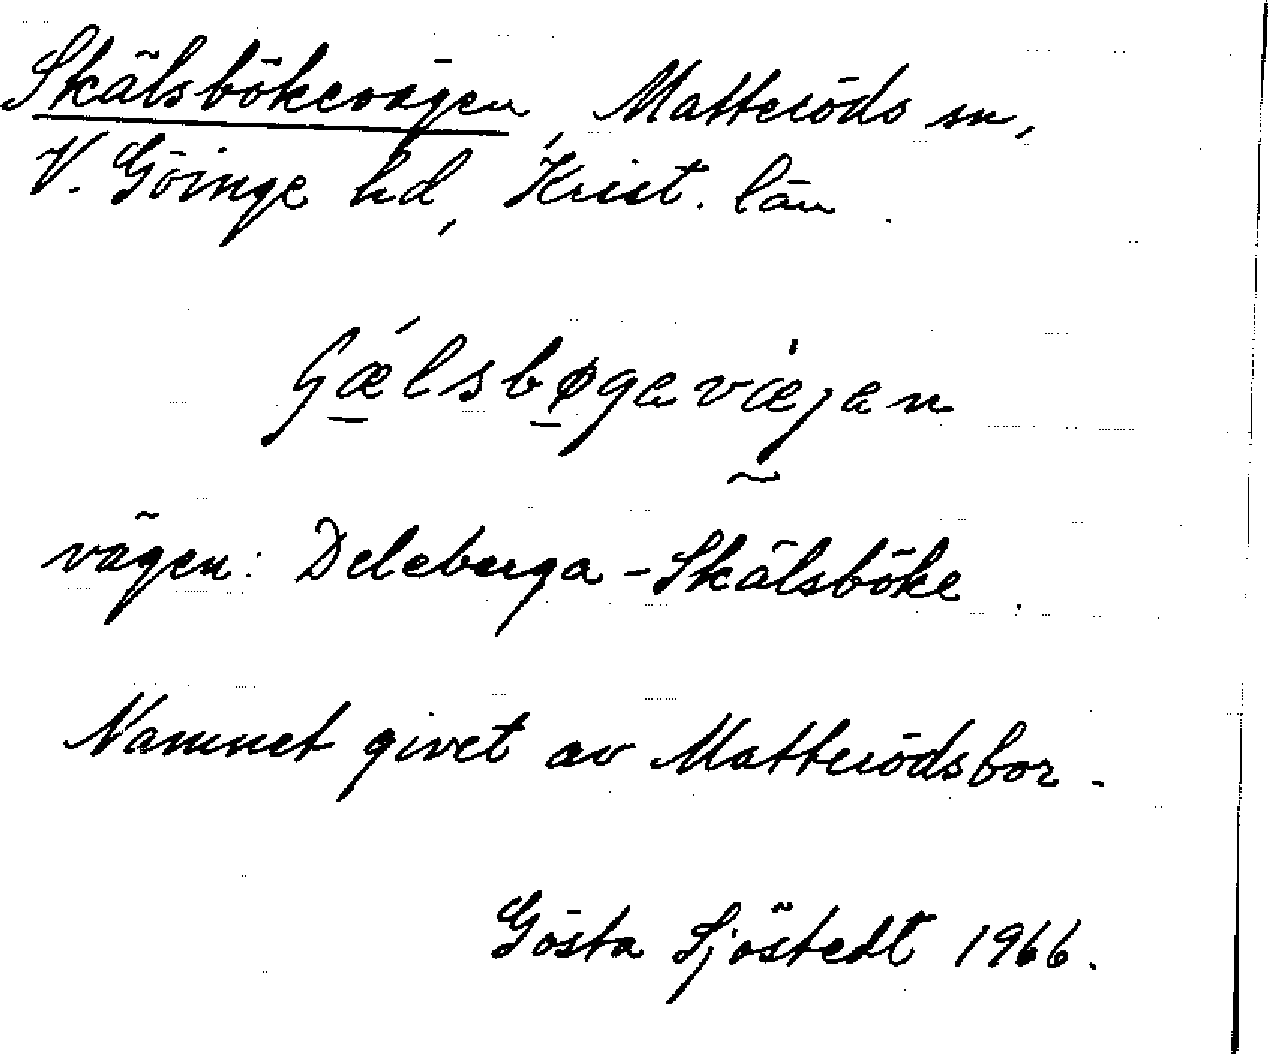 Skälsbökevägen, Matteröds sn,
V. Göinge hd, Krist. län.
Gǽlsbøgavæjan
vägen: Deleberga - Skälsböke.
Namnet givet av Matterödsbor.
Gösta Sjöstedt 1966.